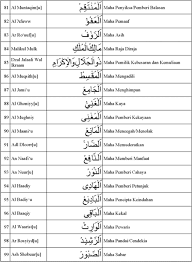 81 Al Muntaqim[u] الْمُنْتَقِمُ Maha Penyiksa/Pemberi Balasan
82 Al 'Afuww الْعَفُوُّ Maha Pemaaf
83 Ar Ra'uuf[u] الرَّؤُوفُ Maha Asih
84 Malikul Mulk مَالِكُ الْمُلْكِ Maha Raja Diraja
85 Dzul Jalaali Wal Ikraam ذُو الْجَلَالِ وَالْإِكْرَامِ Maha Pemilik Kebesaran dan Kemuliaan
86 Al Muqsith[u] الْمُقْسِطُ Maha Mengadili
87 Al Jaami'u الْجَامِعُ Maha Mengumpulkan
88 Al Ghaniy الْغَنِيُّ Maha Kaya
89 Al Mughniy الْمُغْنِيُ Maha Pemberi Kekayaan
90 Al Maani'u الْمَانِعُ Maha Mencegah/Menolak
91 Adl Dhorr[u] الضَّارُّ Maha Memudaratkan
92 An Naafi'u النَّافِعُ Maha Pemberi Manfaat
93 An Nuur[u] النُّورُ Maha Cahaya
94 Al Haady الْهَادِي Maha Pemberi Petunjuk
95 Al Badiy'u الْبَدِيعُ Maha Pencipta Keindahan
96 Al Baaqiy الْبَاقِي Maha Kekal
97 Al Waarits[u] الْوَارِثُ Maha Pewaris
98 Ar Rosyiid[u] الرَّشِيدُ Maha Pandai Cendekia
99 Ash Shobuur[u] الصَّبُورُ Maha Sabar